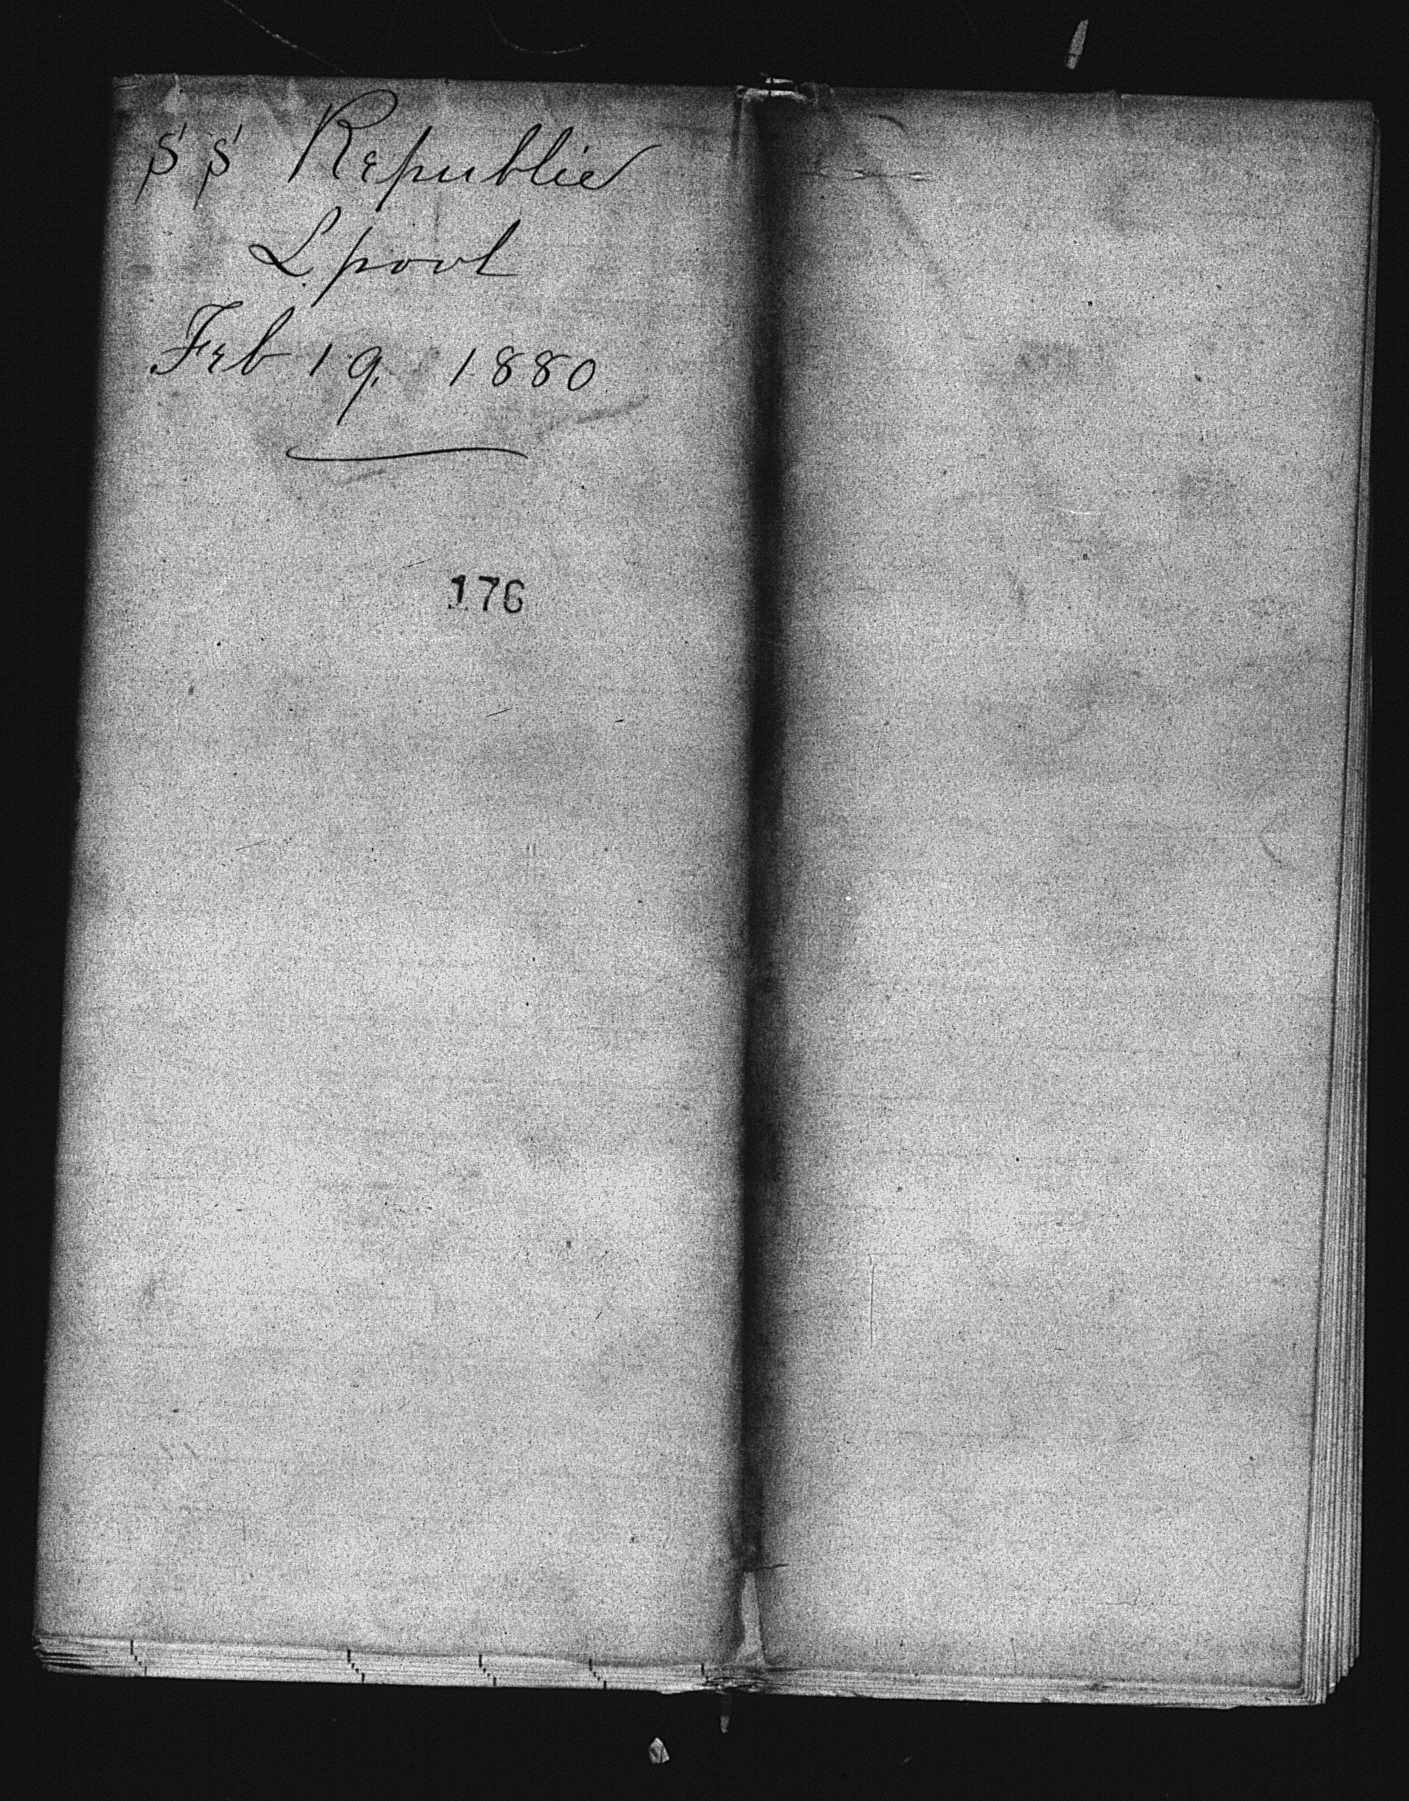 SS Republic
L.pool
Feb 19, 1880
176